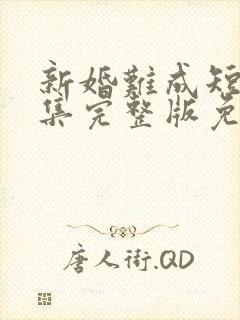 新婚難成短
集完整版免
唐人街.QD